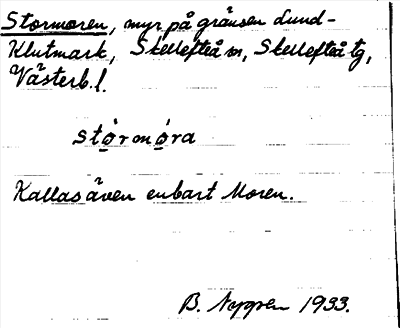 Stormoren, myr på gränsen Lund-
Klutmark, Skellefteå sn, Skellefteå tg,
Västerb. l.
stọ̀rmọ́ra
Kallas även enbart Moren.
B. Nygren 1933.